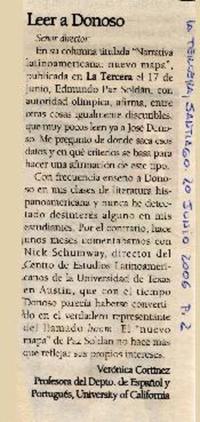 Leer a Donoso
Señor director:
En su columna titulada "Narrativa
latinoamericana: nuevo mapa",
publicada en La Tercera el 17 de
junio, Edmundo Paz Soldán, con
autoridad olímpica, afirma, entre
otras cosas igualmente discutibles,
que muy pocos leen ya a José Dono-
so. Me pregunto de dónde saca esos
datos y en qué criterios se basa para
hacer una afirmación de este tipo.
Con frecuencia enseño a Dono-
so en mis clases de literatura his-
panoamericana y nunca he detec-
tado desinterés alguno en mis
estudiantes. Por el contrario, hace
unos meses comentábamos con
Nick Schumway, director del
Centro de Estudios Latinoameri-
canos de la Universidad de Texas
en Austin, que con el tiempo
Donoso parecía haberse converti-
do en el verdadero representante
del llamado boom. El "nuevo
mapa" de Paz Soldán no hace más
que reflejar sus propios intereses.
Verónica Cortínez
Profesora del Depto. de Español y
Portugués, University of California
LA TERCERA, SANTIAGO 20 JUNIO 2006 P. 2